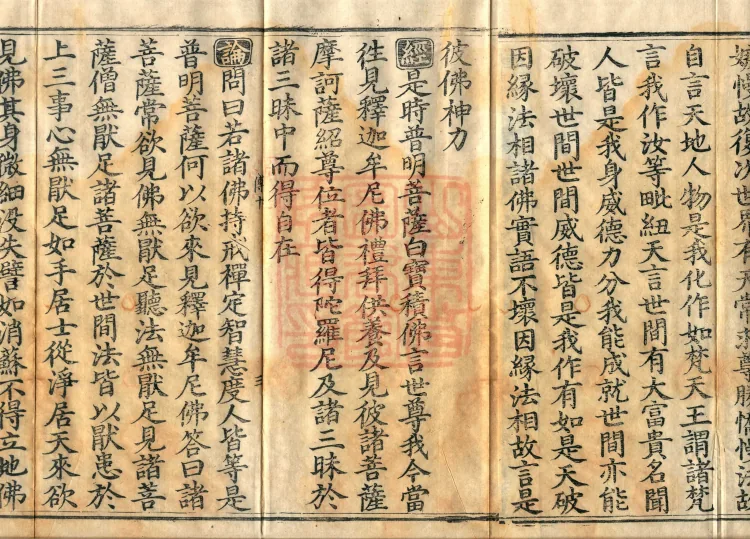 慢故復次世界有天常求尊勝憍慢法故
自言天地人物是我化作如梵天王謂諸梵
言我作汝等毗紐天言世間有大富貴名聞
人皆是我身威德力分我能成就世間亦能
破壞世間世間威德皆是我作有如是天破
因緣法相諸佛實語不壞因緣法相故言是
彼佛神力
經是時普明菩薩白寶積佛言世尊我今當
往見釋迦牟尼佛禮拜供養及見彼諸菩薩
摩訶薩紹尊位者皆得陀羅尼及諸三昧於
諸三昧中而得自在
論問曰若諸佛持戒禪定智慧度人皆等是
三
普明菩薩何以欲來見釋迦牟尼佛答曰諸
菩薩常欲見佛無厭足聽法無厭足見諸菩
薩僧無厭足諸菩薩於世間法皆以厭患於
上三事心無厭足如手居士從淨居天來欲
見佛其身微細没失譬如消蘇不得立地佛